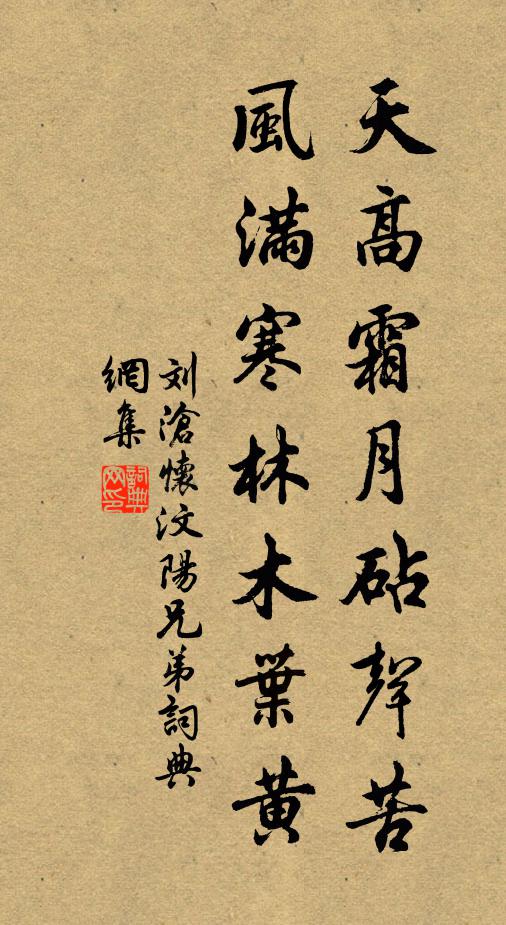 天高霜月砧聲苦
風滿寒林木葉黃
刘滄懷汶陽兄弟詞典
網集
詞典
网印